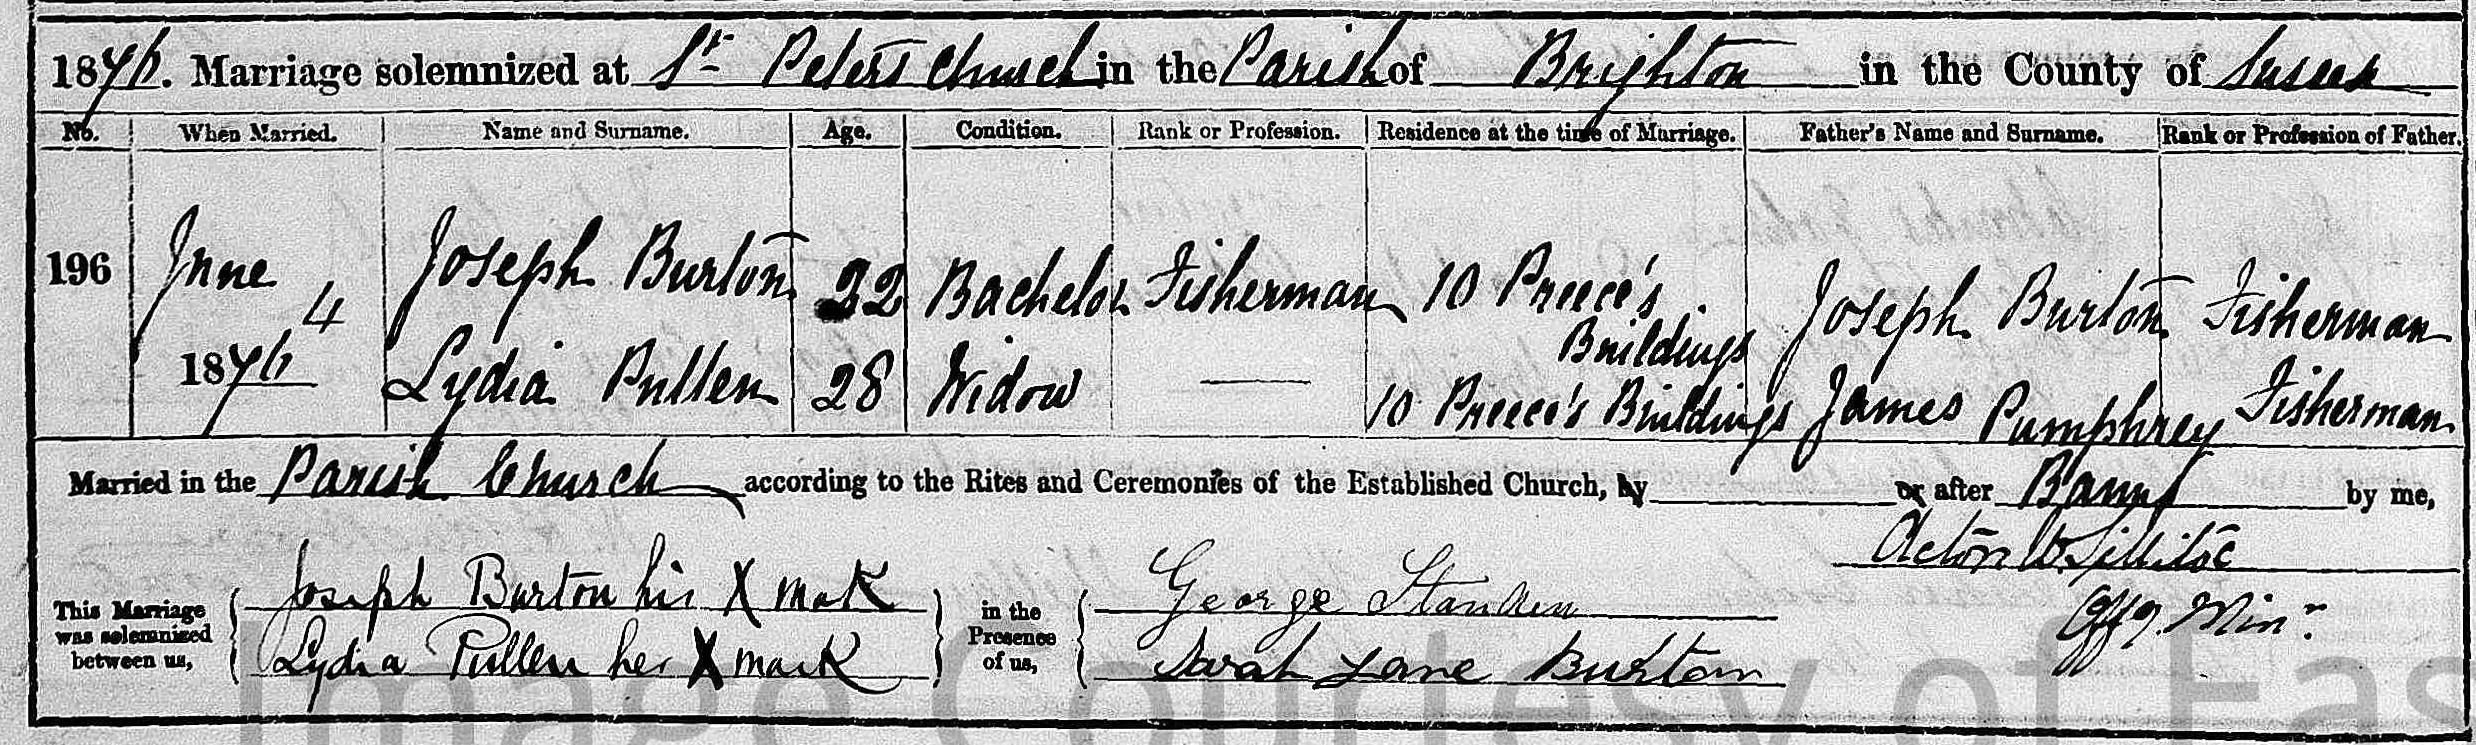 1876. Marriage solemnized at St Peters Church in the Parish of Brighton in the County of Sussex
No. When Married. Name and Surname. Age. Condition. Rank or Profession. Residence at the time of Marriage. Father's Name and Surname. Rank or Profession of Father.
196 June 4 1876 Joseph Burton 22 Bachelor Fisherman 10 Preece's Buildings Joseph Burton Fisherman
Lydia Pullen 28 Widow — 10 Preece's Buildings James Pumphrey Fisherman
Married in the Parish Church according to the Rites and Ceremonies of the Established Church, by or after Banns by me,
Acton W Sillitoe
Offg. Minr.
This Marriage was solemnized between us,
Joseph Burton his X mark
Lydia Pullen her X mark
in the Presence of us,
George Standen
Sarah Jane Burton
Image Courtesy of Eas